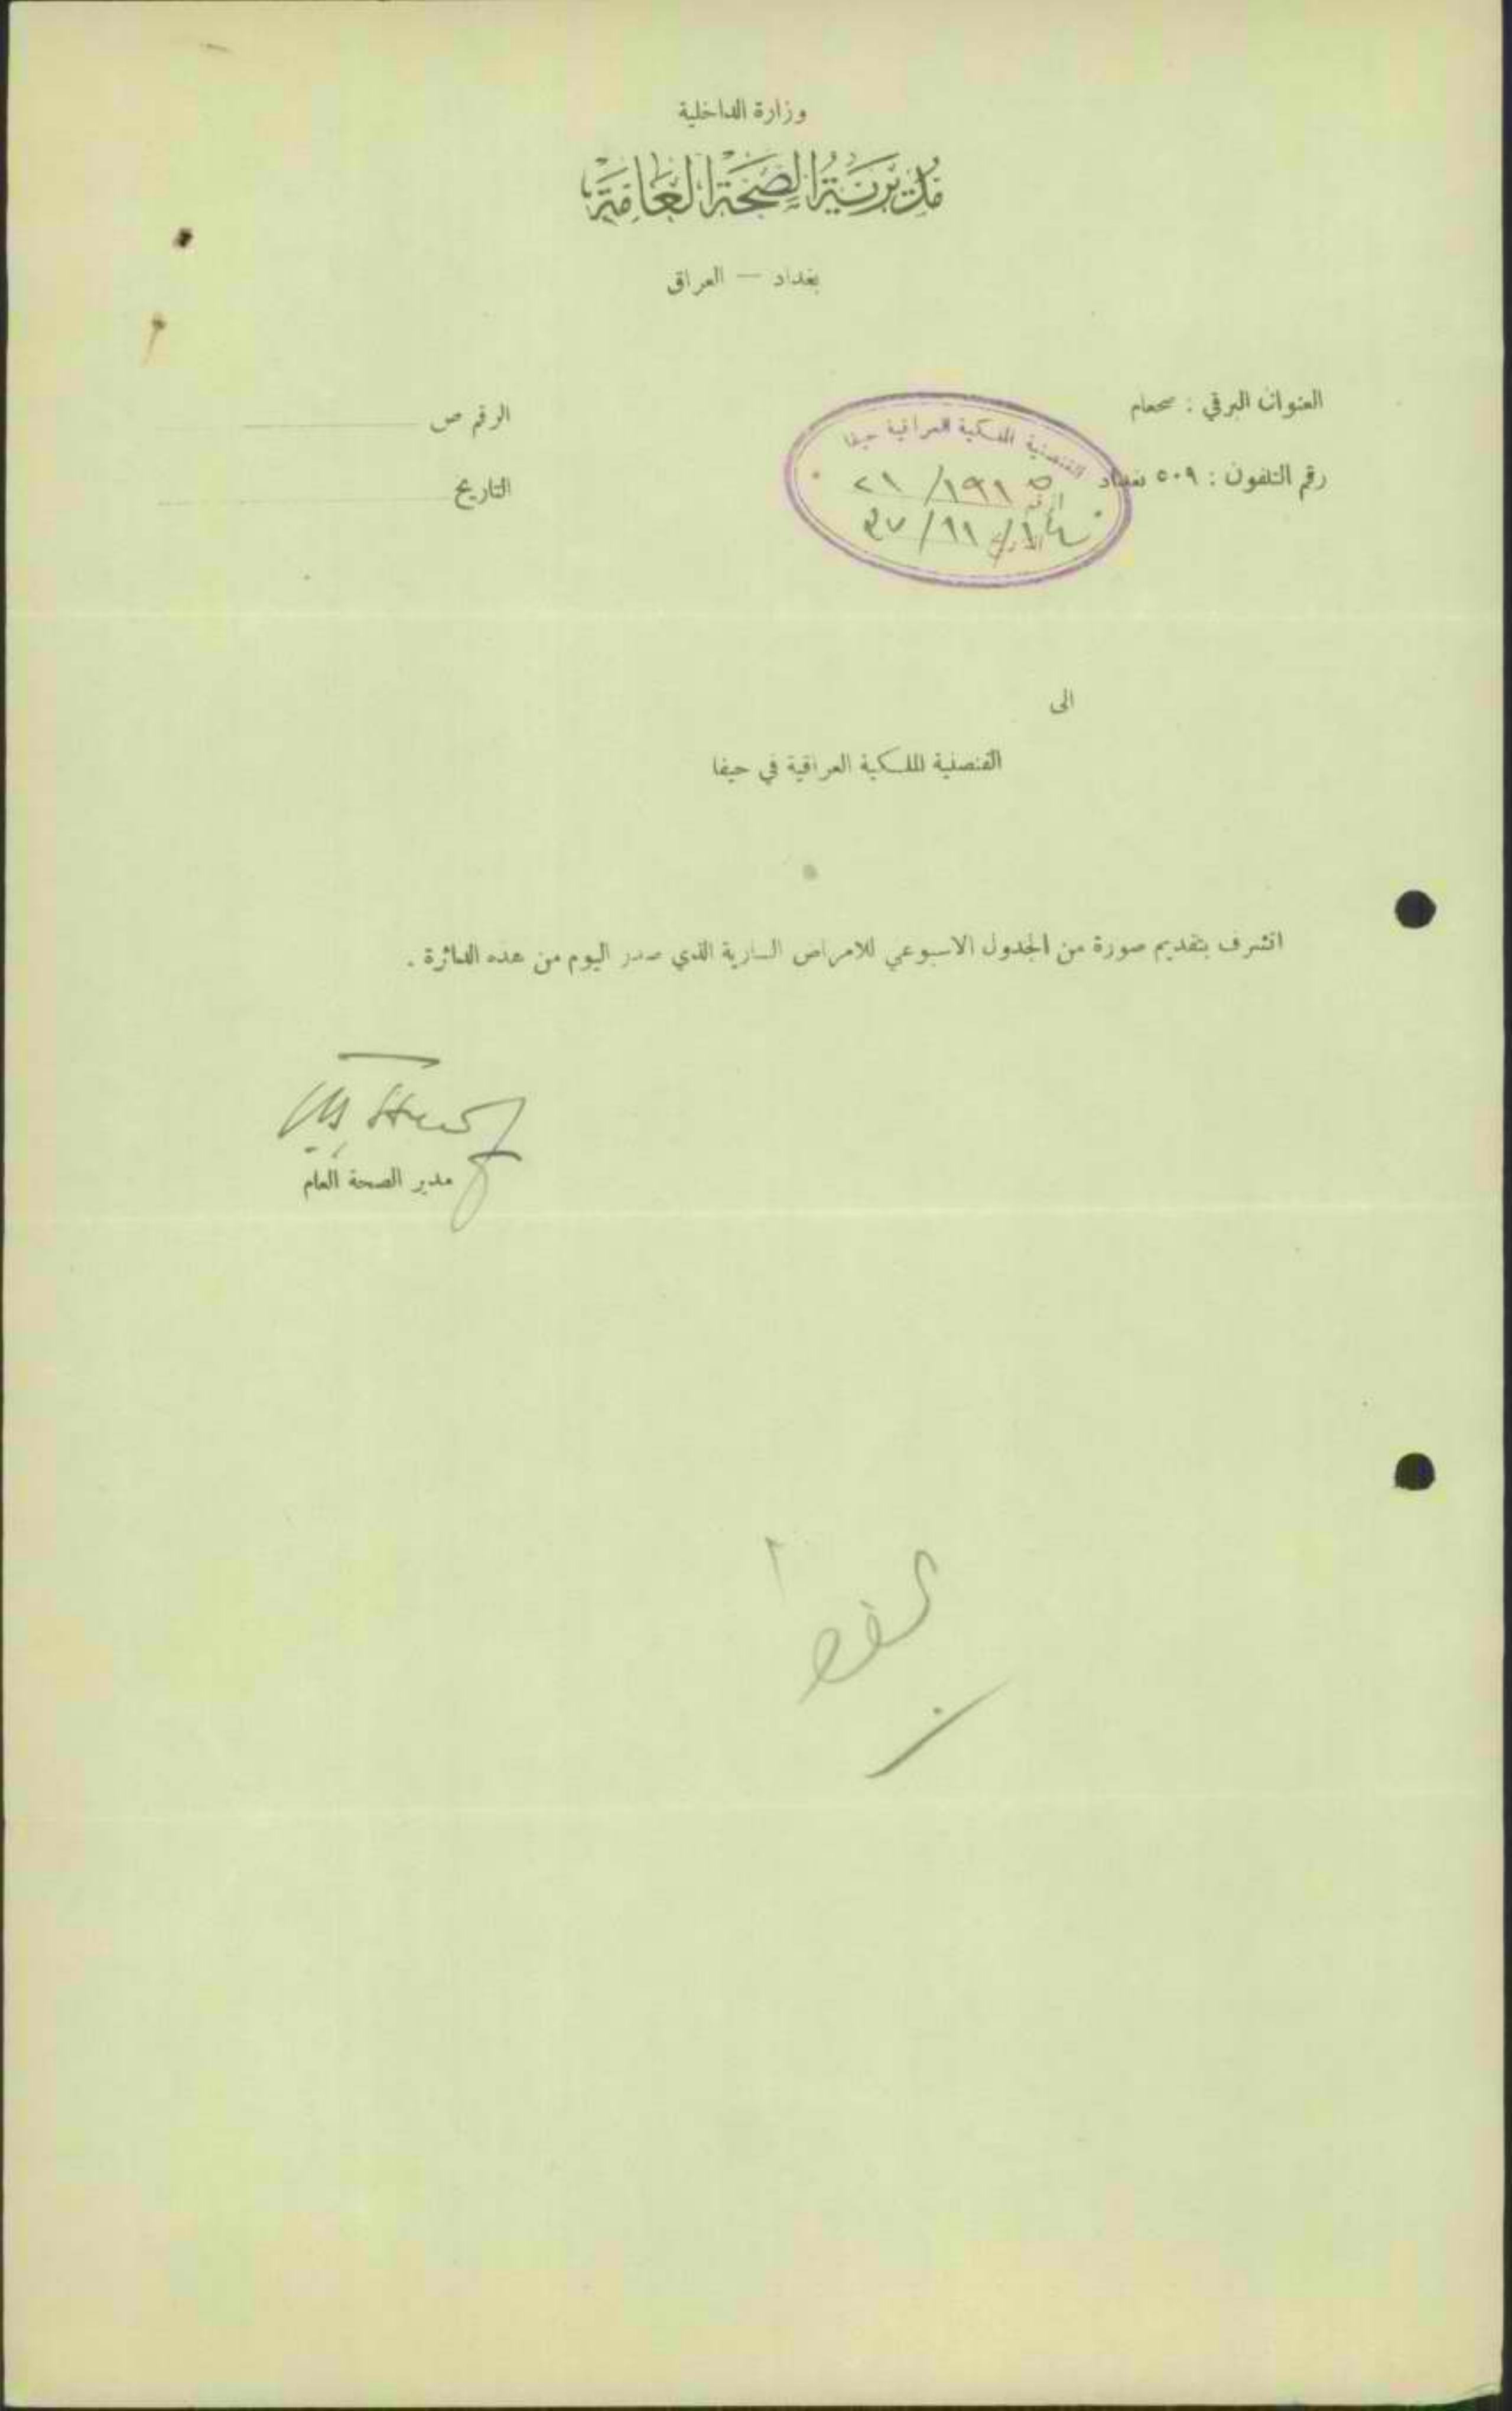 وزارة الداخلية
مديرية الصحة العامة
بغداد — العراق
العنوان البرقي : صحعام
الرقم ص
رقم التلفون : ٥٠٩ بغداد
التاريخ
القنصلية الملكية العراقية حيفا
الرقم
التاريخ
الى
القنصلية الملكية العراقية في حيفا
اتشرف بتقديم صورة من الجدول الاسبوعي للامراض السارية الذي صدر اليوم من هذه الدائرة .
مدير الصحة العام